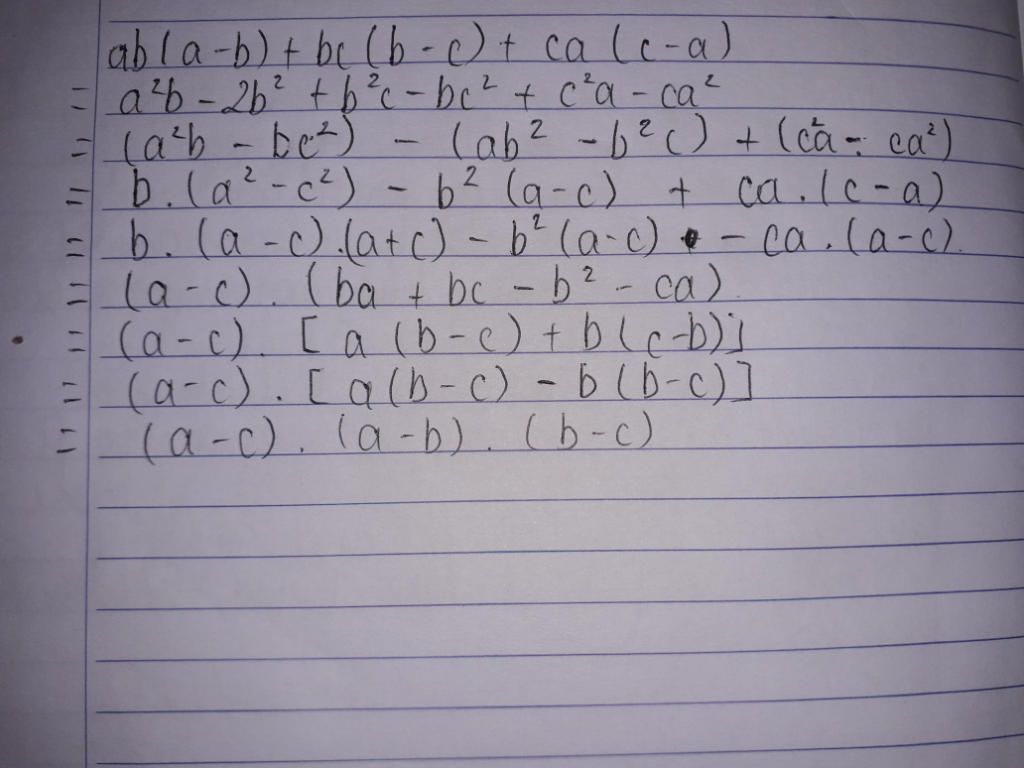 ab(a-b) + bc(b-c) + ca(c-a)
= a²b - 2b² + b²c - bc² + c²a - ca²
= (a²b - bc²) - (ab² - b²c) + (c²a - ca²)
= b.(a² - c²) - b²(a-c) + ca.(c-a)
= b.(a-c).(a+c) - b²(a-c) - ca.(a-c).
= (a-c).(ba + bc - b² - ca)
= (a-c).[a(b-c) + b(c-b)]
= (a-c).[a(b-c) - b(b-c)]
= (a-c).(a-b).(b-c)